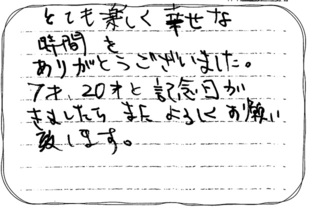 とても楽しく幸せな
時間を
ありがとうございました。
7才、20才と記念日が
きましたら またよろしくお願い
致します。